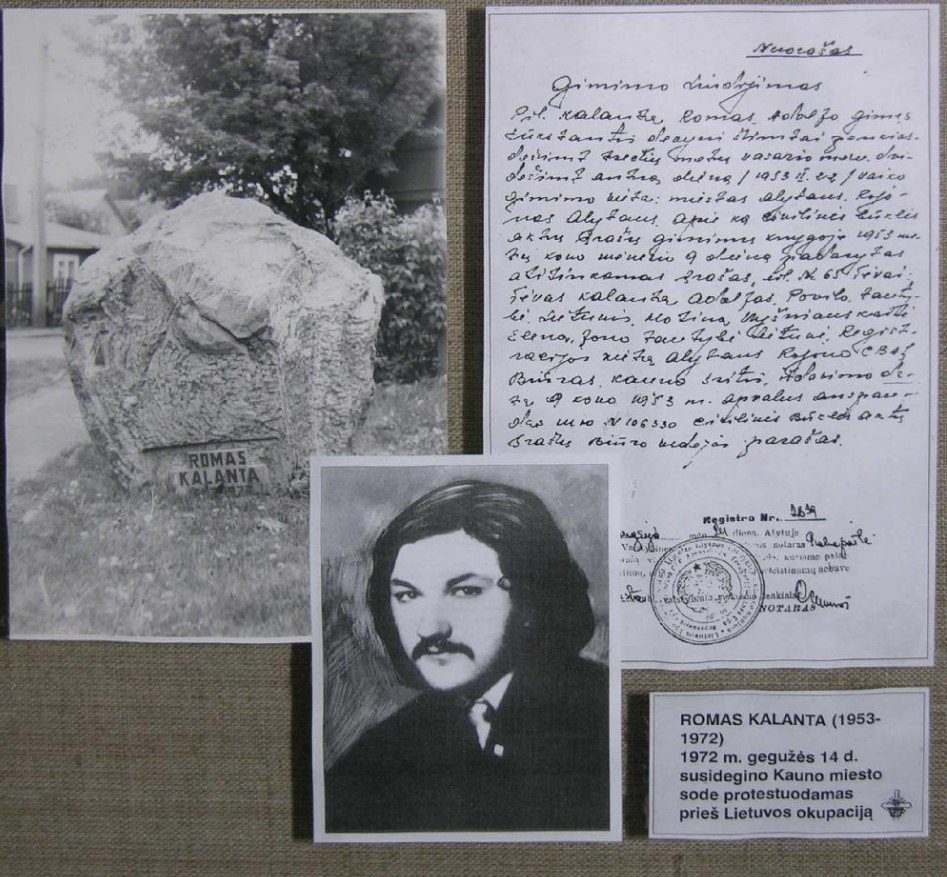 ROMAS
KALANTA
Nuorašas
Gimimo liudijimas
Pil. Kalanta Romas, Adolfo gimęs
tūkstantis devyni šimtai penkias-
dešimt trečių metų vasario mėn. dvi-
dešimt antrą dieną / 1953 II. 22 / vaiko
gimimo vieta: miestas Alytaus, Rajo-
nas Alytaus, apie ką civilinės būklės
aktų įrašų gimimų knygoje 1953 me-
tų kovo mėnesio 9 dieną padarytas
atitinkamas įrašas, Nr. 65. Tėvai:
Tėvas Kalanta Adolfas, Povilo, tauty-
bė lietuvis, Motina
Elena, Jono tautybė lietuvė, Regist-
racijos vieta Alytaus Rajono CBAĮ
Biūras, Kauno sritis, Išdavimo da-
ta 9 kovo 1953 m. apvalus antspau-
das Nr. N 106330 civilinės būklės aktų
įrašų Biūro vedėjas parašas.
Registro Nr.
dieną, Alytuje
notaras
nebuvo
NOTARAS
ROMAS KALANTA (1953-
1972)
1972 m. gegužės 14 d.
susidegino Kauno miesto
sode protestuodamas
prieš Lietuvos okupaciją